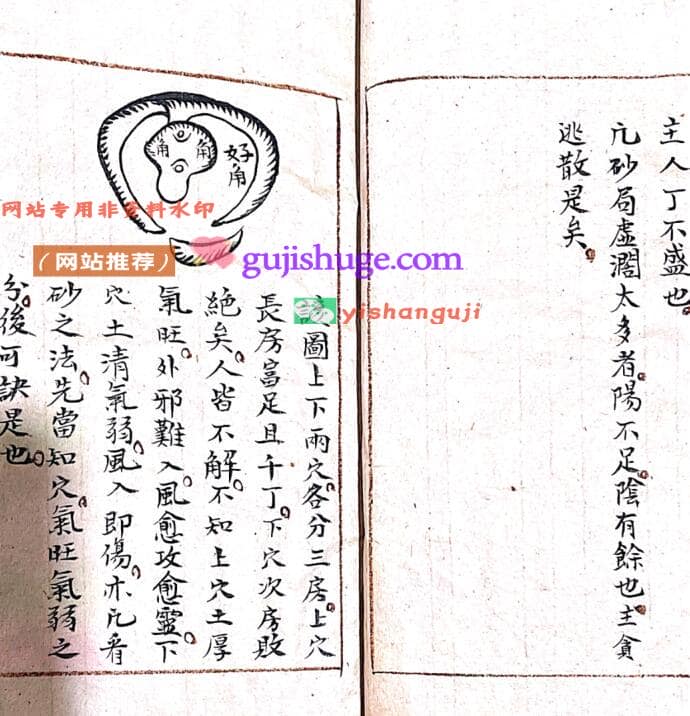 主人丁不盛也
凢砂局虛濶太多者陽不足陰有餘也主貪
逃散是矣
好角
角
角
圖上下兩穴各分三房上穴
長房富足且千丁下穴次房敗
絕矣人皆不解不知上穴土厚
氣旺外邪難入風愈攻愈靈下
穴土清氣弱風入即傷亦凢看
砂之法先當知穴氣旺氣弱之
分後可訣是也
网站专用非资料水印
（网站推荐）
gujishuge.com
yishanguji